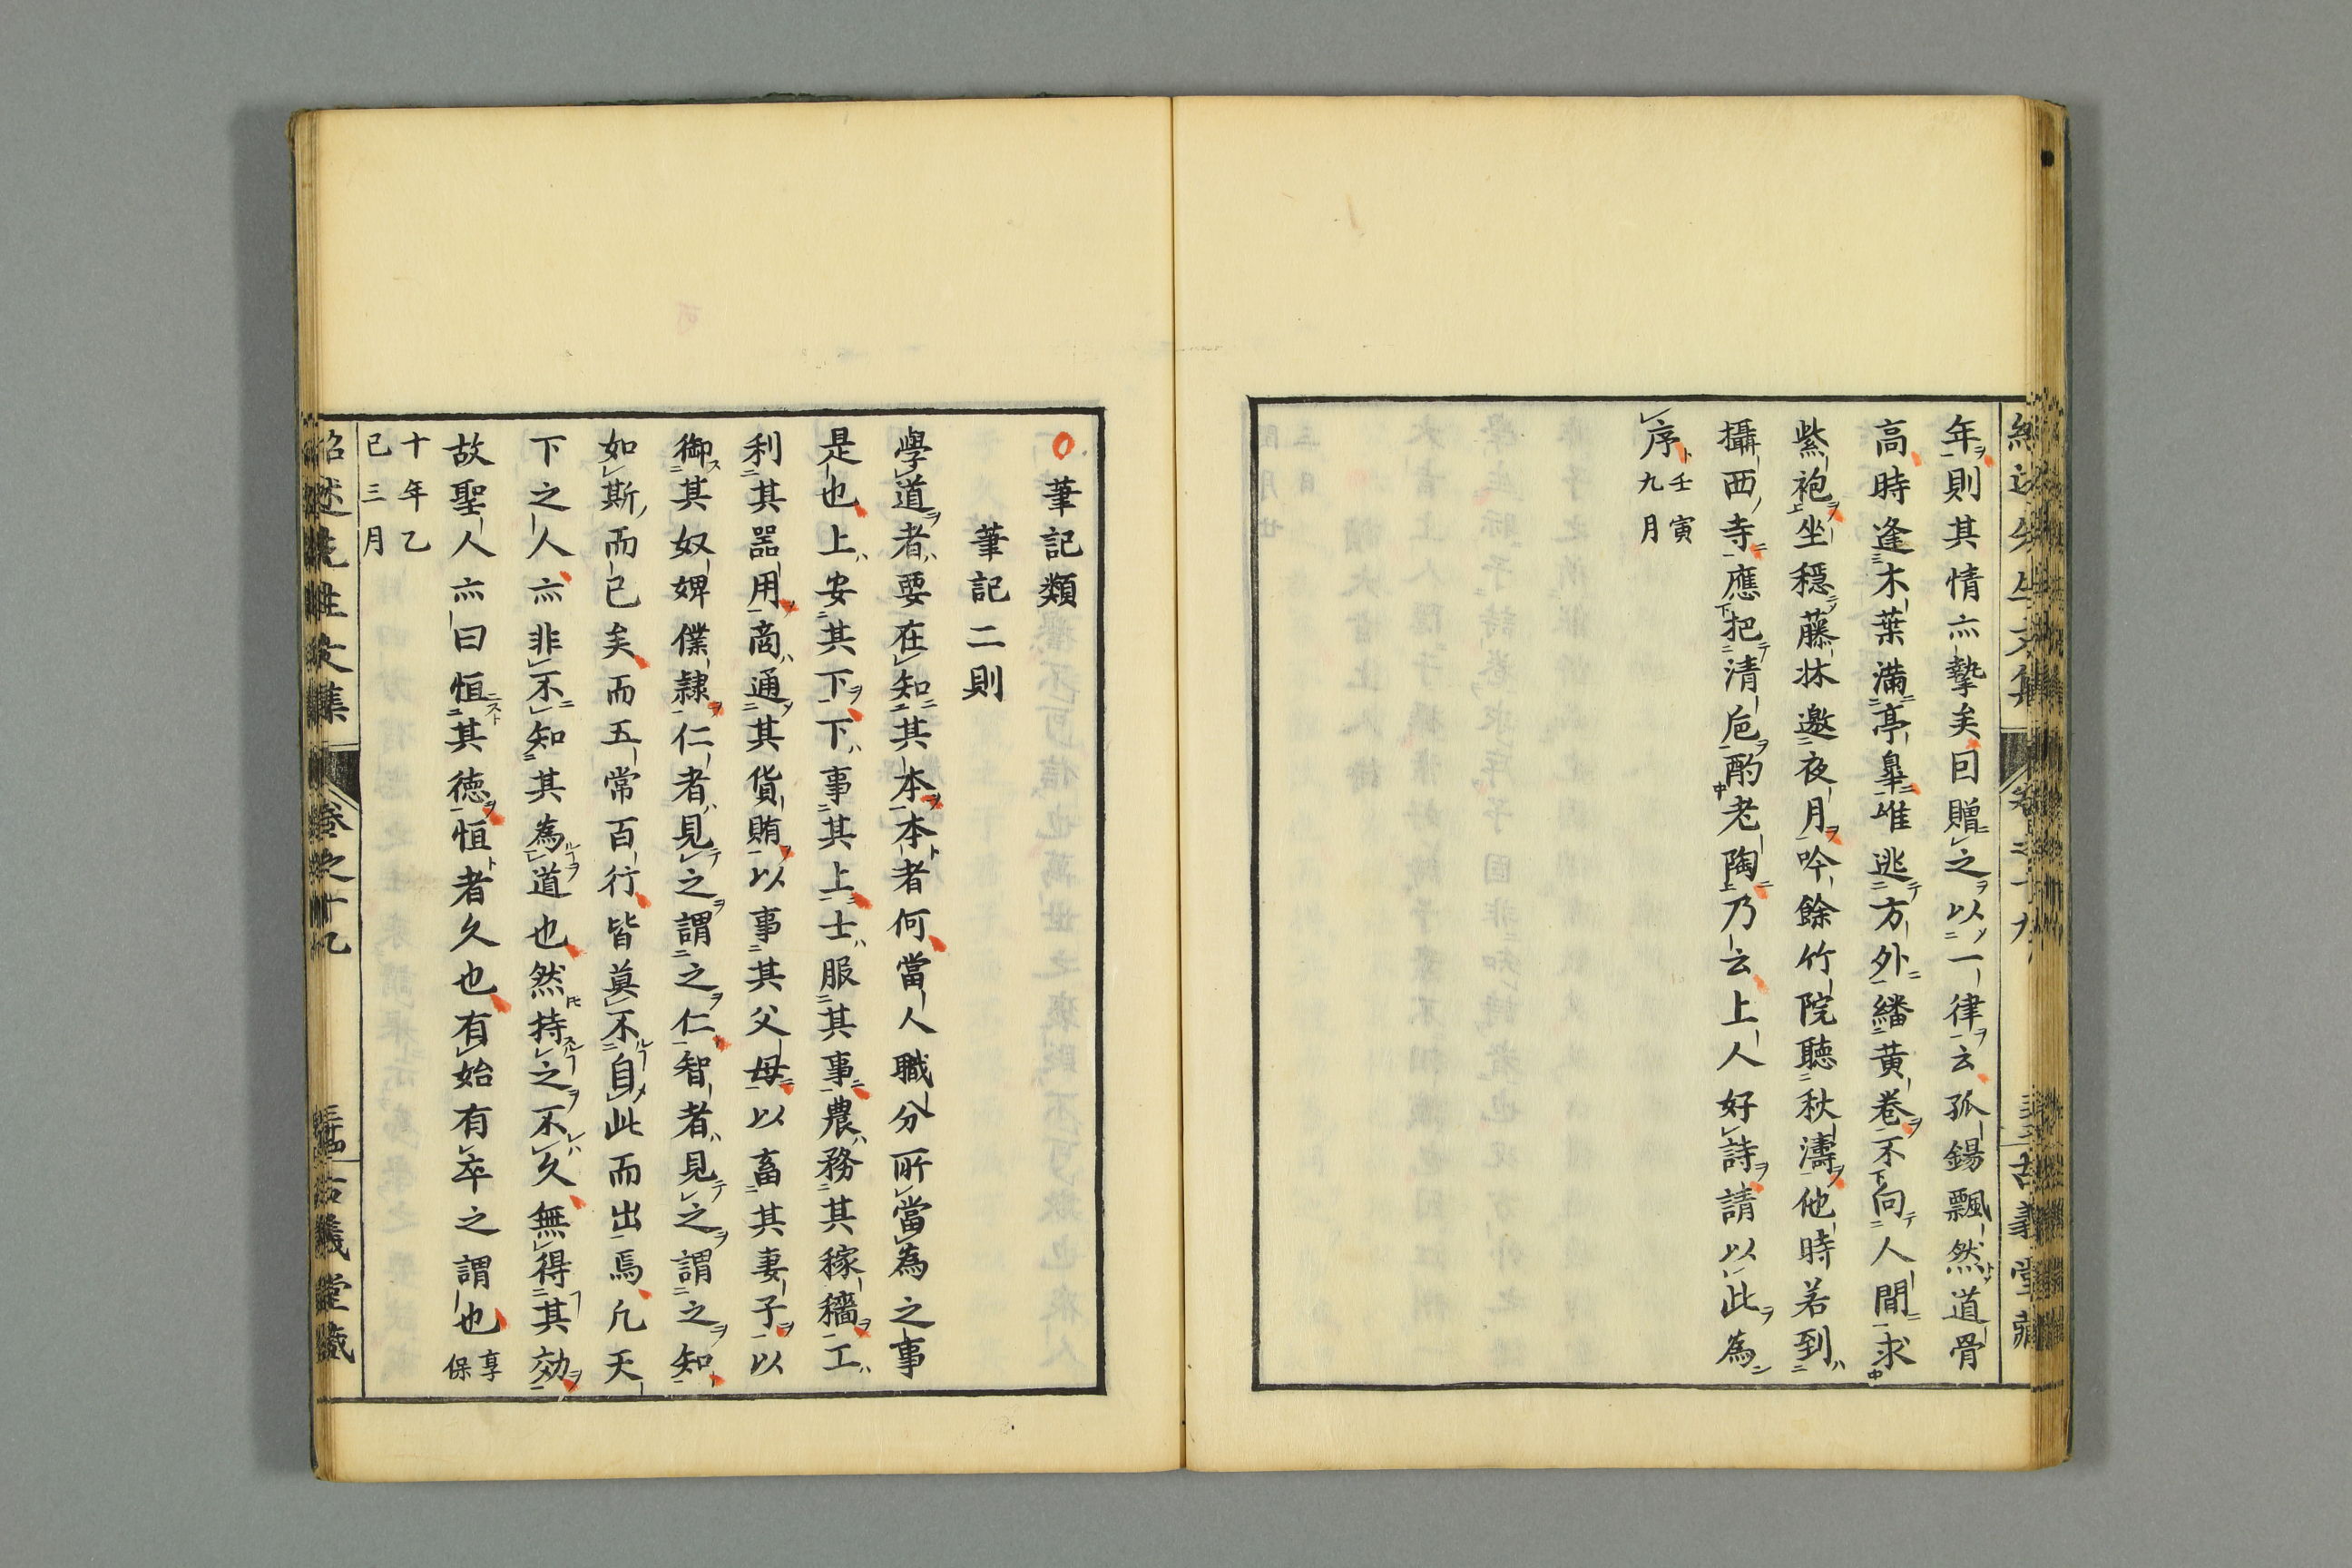 年則其情亦摯矣回贈之以一律云孤錫飄然道骨
高時逢木葉滿亭皐唯逃方外繙黄卷不向人間求
紫袍坐穩藤牀邀夜月吟餘竹院聽秋濤他時若到
攝西寺應把清巵酌老陶乃云上人好詩請以此為
序壬寅九月
古義堂藏
筆記類
筆記二則
學道者要在知其本本者何當人職分所當為之事
是也上安其下下事其上士服其事農務其稼穡工
利其器用商通其貨賄以事其父母以畜其妻子以
御其奴婢僕隷仁者見之謂之仁智者見之謂之知
如斯而已矣而五常百行皆莫不自此而出焉凡天
下之人亦非不知其為道也然持之不久無得其効
故聖人亦曰恒其徳恒者久也有始有卒之謂也享保
十年乙巳三月
紹述先生文集 卷之十九 古義堂藏